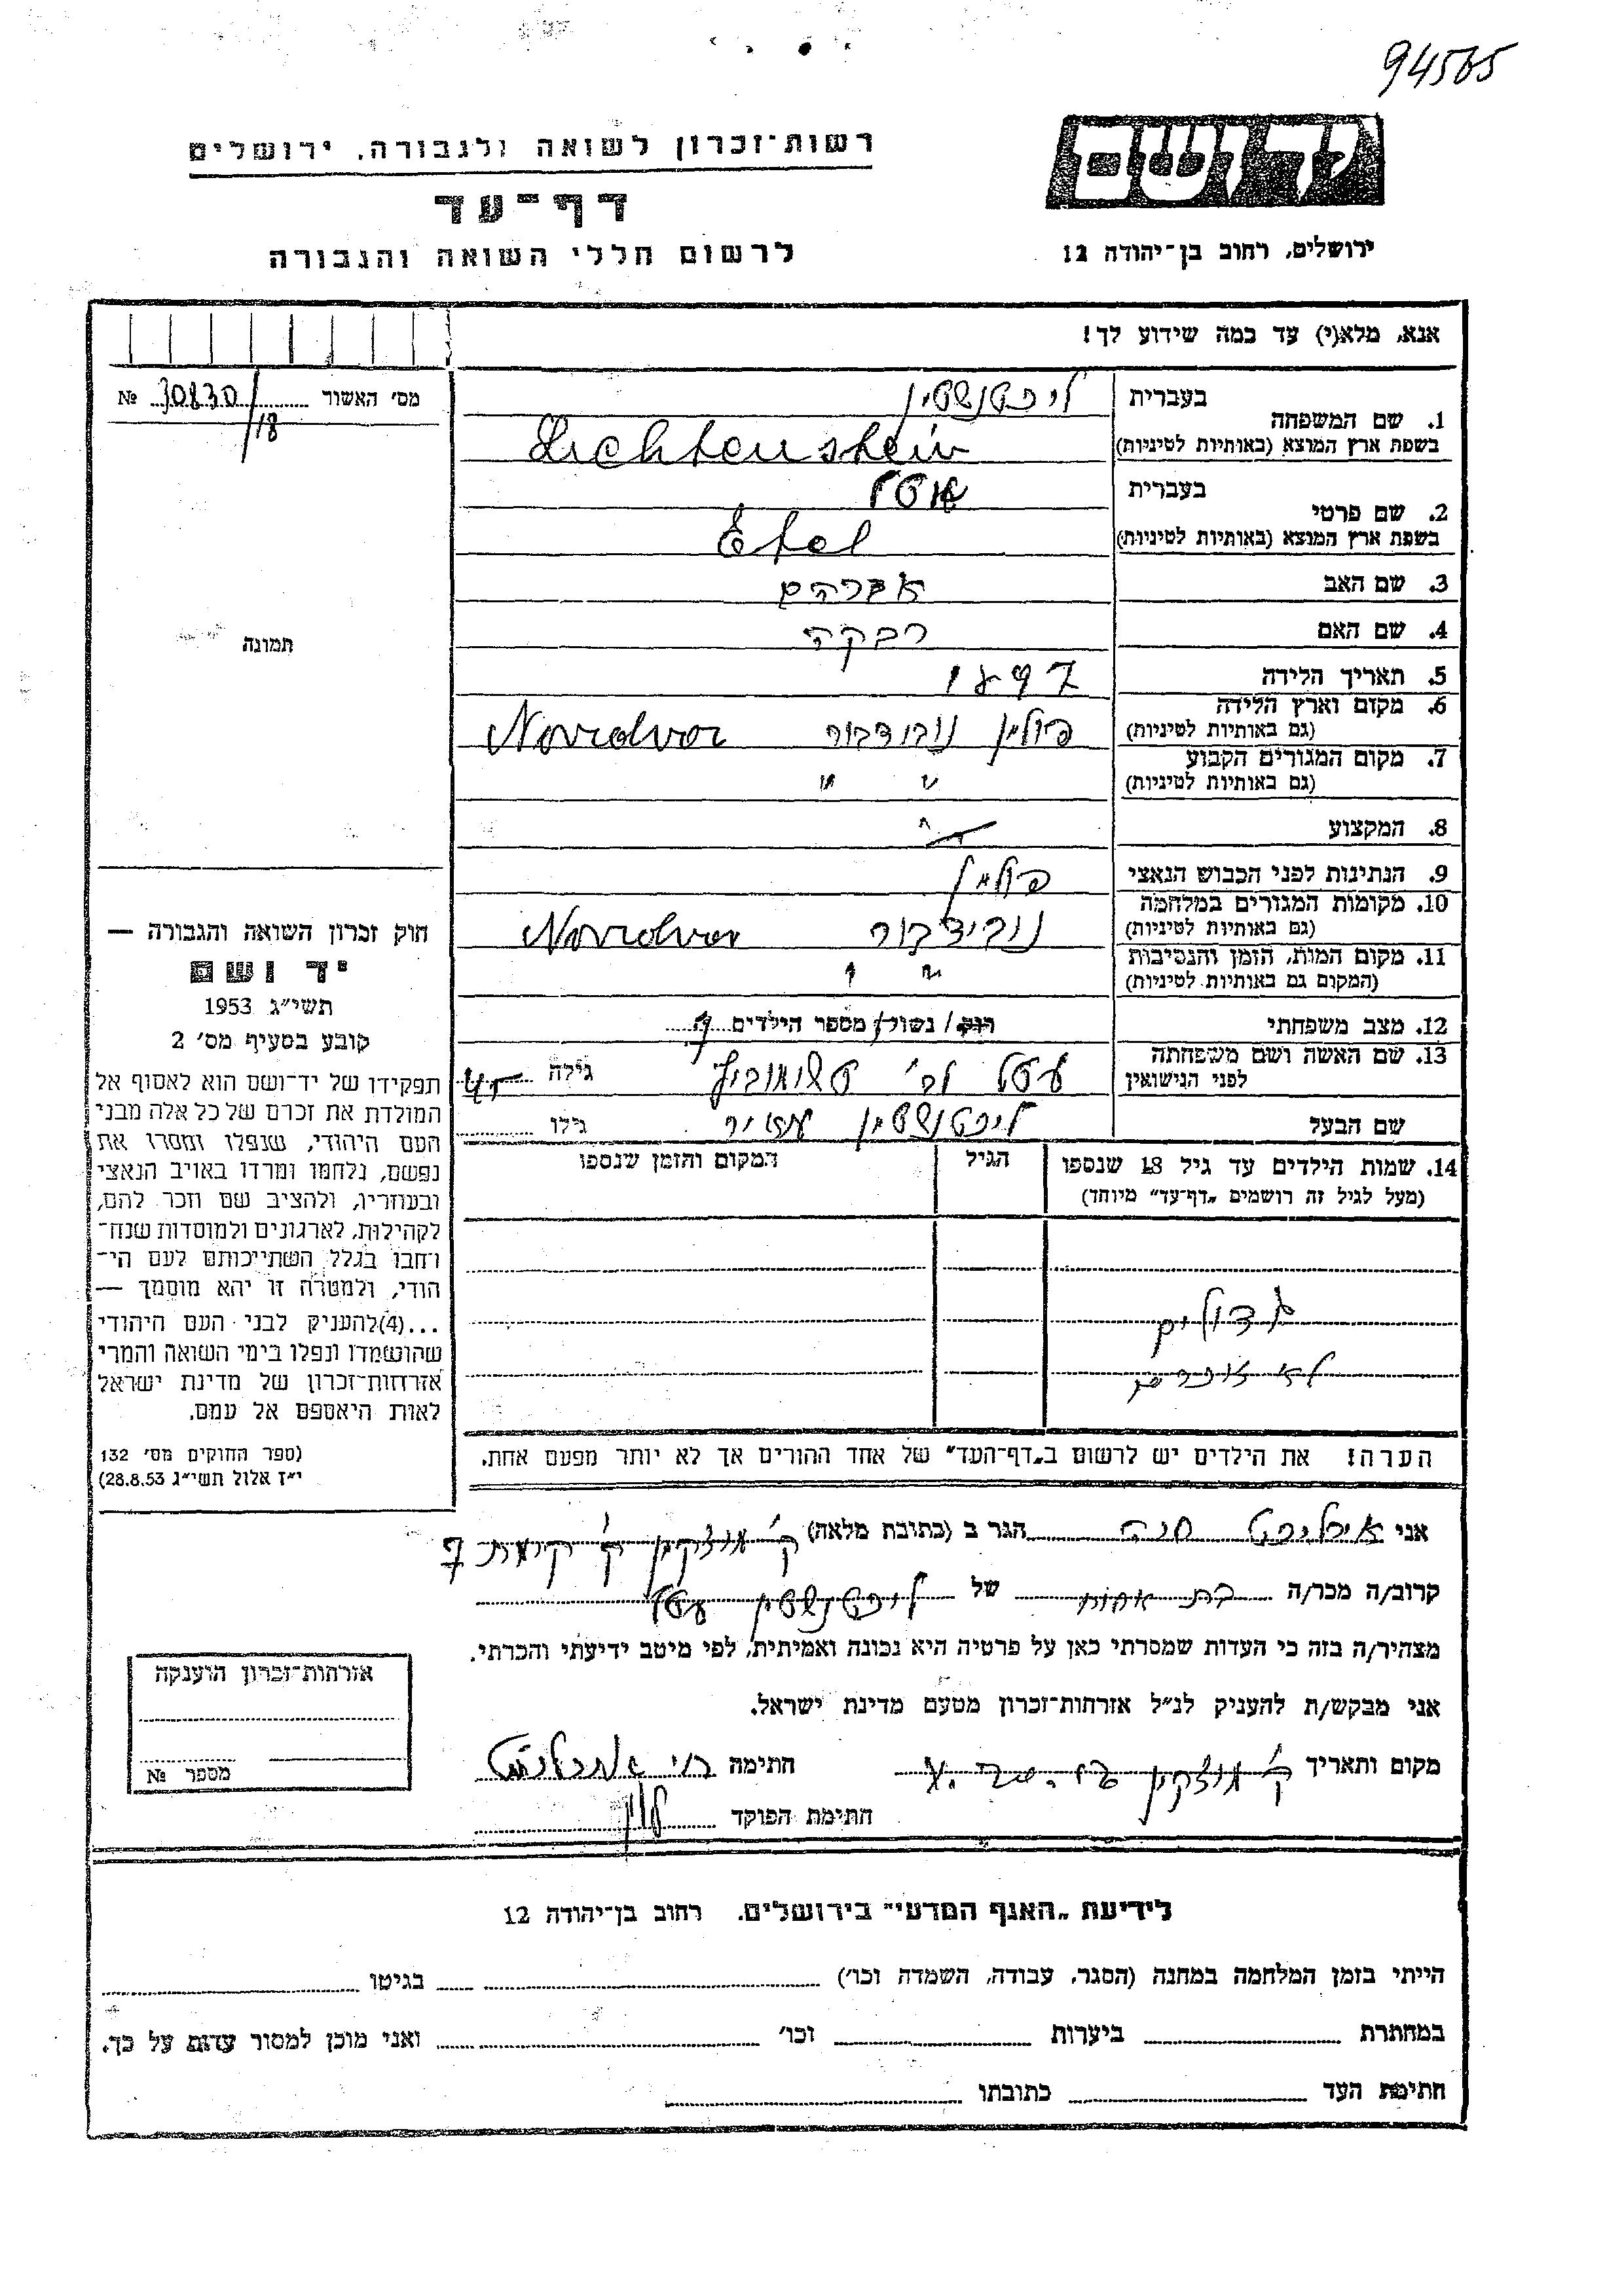 94565
ידושם
רשות־זכרון לשואה ולגבורה, ירושלים
דף־עד
לרשום חללי השואה והגבורה
ירושלים, רחוב בן־יהודה 12
אנא, מלא(י) עד כמה שידוע לך!
מס׳ האשור 30830 №
/18
בעברית ליכטנשטין
1. שם המשפחה
בשפת ארץ המוצא (באותיות לטיניות) Lichtenstein
בעברית
2. שם פרטי
בשפת ארץ המוצא (באותיות לטיניות) Etel
3. שם האב אברהם
4. שם האם רבקה
5. תאריך הלידה 1897
6. מקום וארץ הלידה
(גם באותיות לטיניות) פולין נובודבור Novrdvor
7. מקום המגורים הקבוע
(גם באותיות לטיניות) " "
8. המקצוע
9. הנתינות לפני הכבוש הנאצי פולין
10. מקומות המגורים במלחמה
(גם באותיות לטיניות) נובידבור Novrdvor
11. מקום המות, הזמן והנסיבות
(המקום גם באותיות לטיניות) " "
12. מצב משפחתי רוק/ נשוי/ מספר הילדים
13. שם האשה ושם משפחתה
לפני הנישואין עטל לב׳ גילה 45
שם הבעל ליכטנשטין מאיר גילו
14. שמות הילדים עד גיל 18 שנספו
(מעל לגיל זה רושמים „דף־עד״ מיוחד)
הגיל
המקום והזמן שנספו
גדולים
לא זוכרים
הערה! את הילדים יש לרשום ב„דף־העד״ של אחד ההורים אך לא יותר מפעם אחת.
תמונה
חוק זכרון השואה והגבורה —
יד ושם
תשי״ג 1953
קובע בסעיף מס׳ 2
תפקידו של יד־ושם הוא לאסוף אל
המולדת את זכרם של כל אלה מבני
העם היהודי, שנפלו ומסרו את
נפשם, נלחמו ומרדו באויב הנאצי
ובעוזריו, ולהציב שם וזכר להם,
לקהילות, לארגונים ולמוסדות שנח־
רחבו בגלל השתייכותם לעם הי־
הודי, ולמטרה זו יהא מוסמך —
...(4)להעניק לבני העם היהודי
שהושמדו ונפלו בימי השואה והמרי
אזרחות־זכרון של מדינת ישראל
לאות היאספם אל עמם.
(ספר החוקים מס׳ 132
י״ז אלול תשי״ג 28.8.53)
אני חנה הגר ב (כתובת מלאה) ק׳ מוצקין
קרוב/ה מכר/ה בת אחות של ליכטנשטין עטל
מצהיר/ה בזה כי העדות שמסרתי כאן על פרטיה היא נכונה ואמיתית, לפי מיטב ידיעתי והכרתי.
אני מבקש/ת להעניק לנ״ל אזרחות־זכרון מטעם מדינת ישראל.
מקום ותאריך ק׳ מוצקין חתימה
חתימת הפוקד
אזרחות־זכרון הוענקה
מספר №
לידיעת „האגף המדעי״ בירושלים. רחוב בן־יהודה 12
הייתי בזמן המלחמה במחנה (הסגר, עבודה, השמדה וכו׳) בגיטו
במחתרת ביערות וכו׳ ואני מוכן למסור עדות על כך.
חתימת העד כתובתו